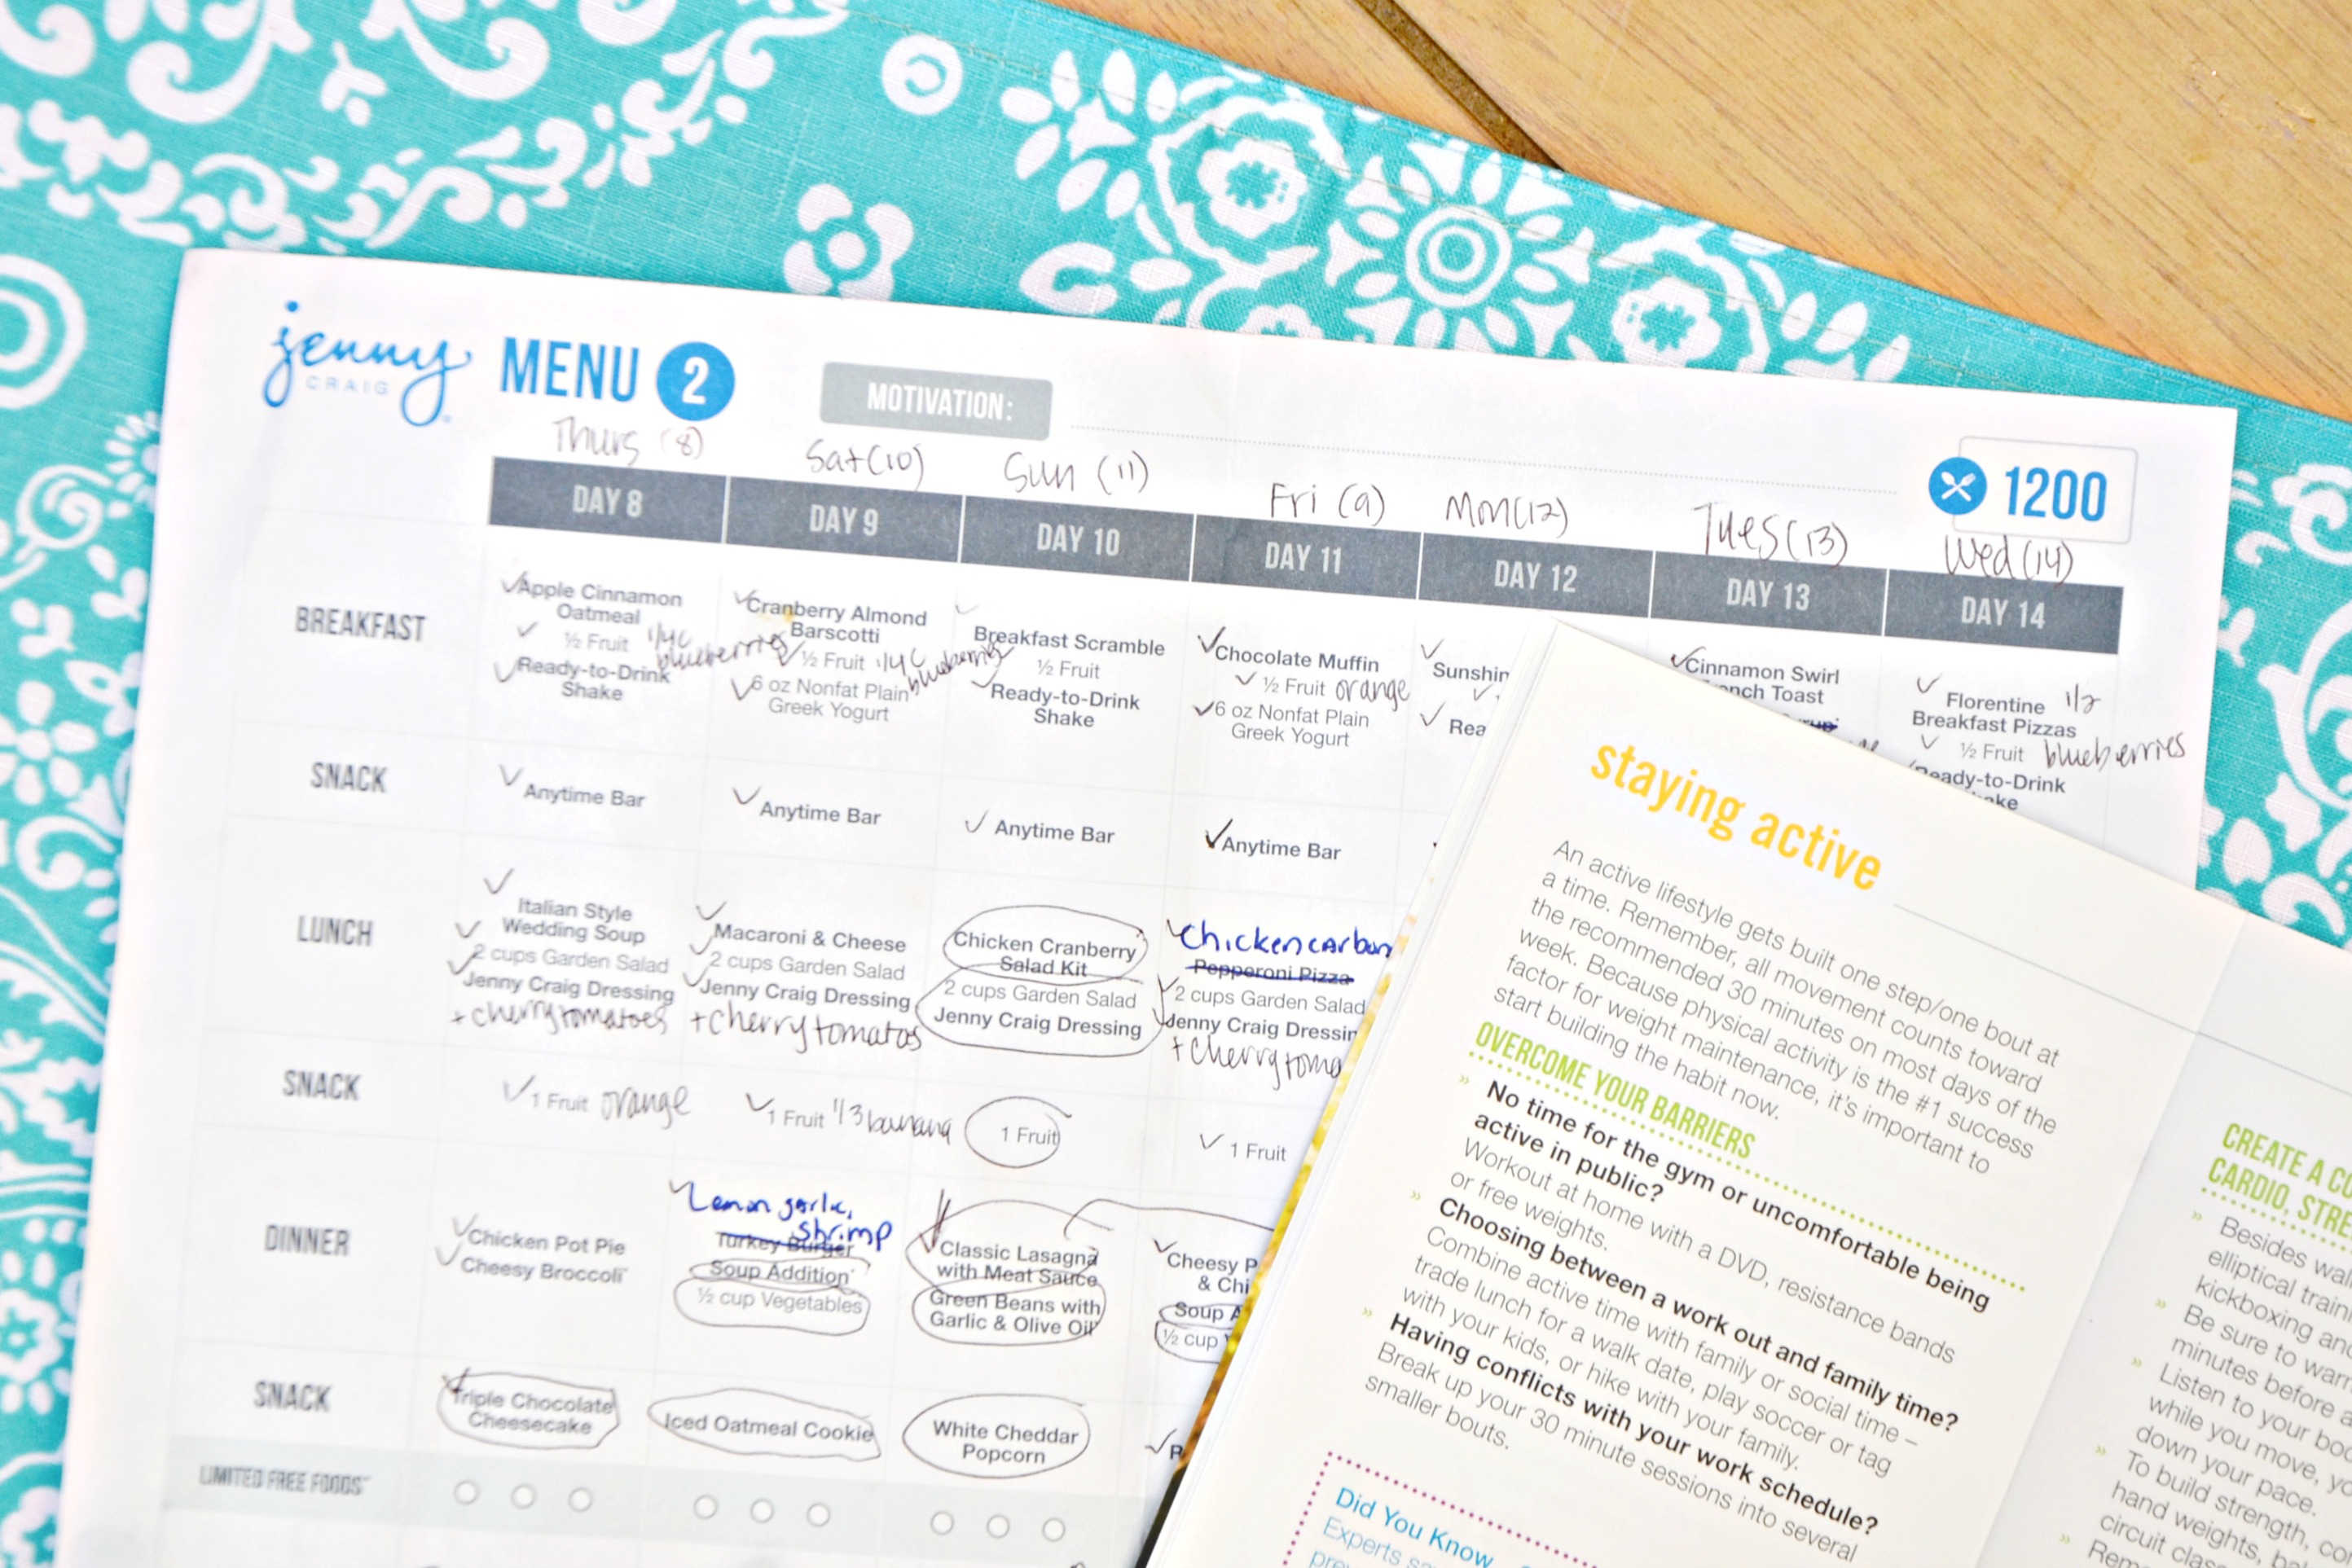 jenny
CRAIG
MENU 2
MOTIVATION:
1200
Thurs (8)
Sat(10)
Sun (11)
Fri (9)
Mon(12)
Tues(13)
Wed(14)
DAY 8
DAY 9
DAY 10
DAY 11
DAY 12
DAY 13
DAY 14
BREAKFAST
Apple Cinnamon
Oatmeal
½ Fruit 1/4c
blueberries
Ready-to-Drink
Shake
Cranberry Almond
Barscotti
½ Fruit 1/4c
blueberries
6 oz Nonfat Plain
Greek Yogurt
Breakfast Scramble
½ Fruit
Ready-to-Drink
Shake
Chocolate Muffin
½ Fruit orange
6 oz Nonfat Plain
Greek Yogurt
Sunshin
Rea
Cinnamon Swirl
Toast
Florentine 1/2
Breakfast Pizzas
½ Fruit blueberries
Ready-to-Drink
SNACK
Anytime Bar
Anytime Bar
Anytime Bar
Anytime Bar
LUNCH
Italian Style
Wedding Soup
2 cups Garden Salad
Jenny Craig Dressing
+ cherry tomatoes
Macaroni & Cheese
2 cups Garden Salad
Jenny Craig Dressing
+ cherry tomatos
Chicken Cranberry
Salad Kit
2 cups Garden Salad
Jenny Craig Dressing
Chicken carbon
Pepperoni Pizza
2 cups Garden Salad
Jenny Craig Dressin
+ cherry toma
SNACK
1 Fruit orange
1 Fruit 1/3 banana
1 Fruit
1 Fruit
DINNER
Chicken Pot Pie
Cheesy Broccoli
Lemon garlic
shrimp
Turkey Burger
Soup Addition
½ cup Vegetables
Classic Lasagna
with Meat Sauce
Green Beans with
Garlic & Olive Oil
Cheesy P
& Chi
Soup A
½ cup
SNACK
Triple Chocolate
Cheesecake
Iced Oatmeal Cookie
White Cheddar
Popcorn
LIMITED FREE FOODS
staying active
An active lifestyle gets built one step/one bout at
a time. Remember, all movement counts toward
the recommended 30 minutes on most days of the
week. Because physical activity is the #1 success
factor for weight maintenance, it's important to
start building the habit now.
OVERCOME YOUR BARRIERS
» No time for the gym or uncomfortable being
active in public?
Workout at home with a DVD, resistance bands
or free weights.
» Choosing between a work out and family time?
Combine active time with family or social time –
trade lunch for a walk date, play soccer or tag
with your kids, or hike with your family.
» Having conflicts with your work schedule?
Break up your 30 minute sessions into several
smaller bouts.
Did You Know
Experts sa
CREATE A CO
CARDIO, STRE
» Besides wal
elliptical train
kickboxing an
» Be sure to warm
minutes before a
» Listen to your bo
while you move, yo
down your pace.
» To build strength, co
hand weights,
circuit clas